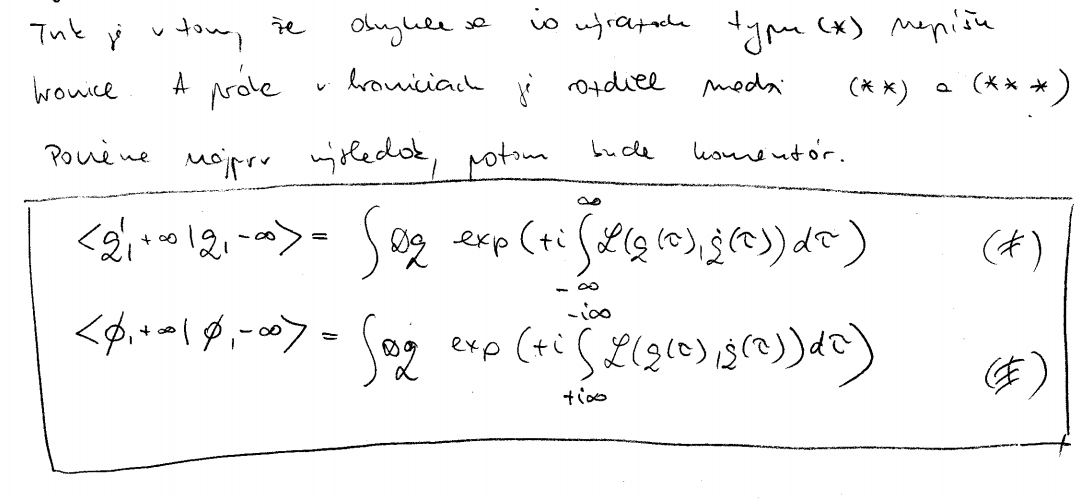 Trik je v tom, že obvykle sa vo výrazoch typu (*) nepíšu
hranice. A práve v hraniciach je rozdiel medzi (**) a (***)
Povieme najprv výsledok, potom bude komentár.
<q', +∞ | q, -∞> = ∫ Dq exp (+i ∫_{-∞}^{∞} L(q(τ), q̇(τ)) dτ) (≠)
<ϕ, +∞ | ϕ, -∞> = ∫ Dq exp (+i ∫_{+i∞}^{-i∞} L(q(τ), q̇(τ)) dτ)